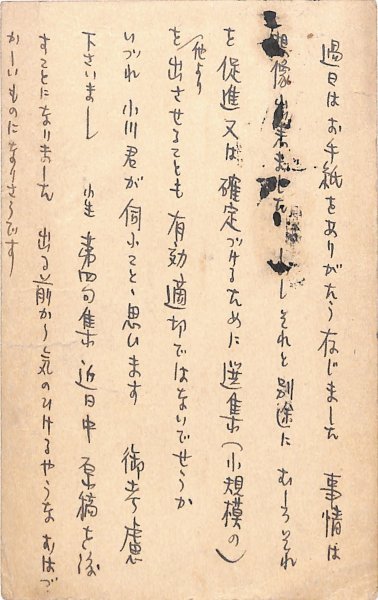 過日はお手紙をありがたう存じました 事情は
想像出来ました しかしそれと別途に むしろそれ
を促進又は確定づけるために選集(小規模の)
を 他より 出させることも有効適切ではないでせうか
いづれ小川君が伺ふことゝ思ひます 御考慮
下さいまし 小生 第四句集 近日中 原稿を渡
すことになりました 出る前から気のひけるやうな むはづ
かしいものになりさうです